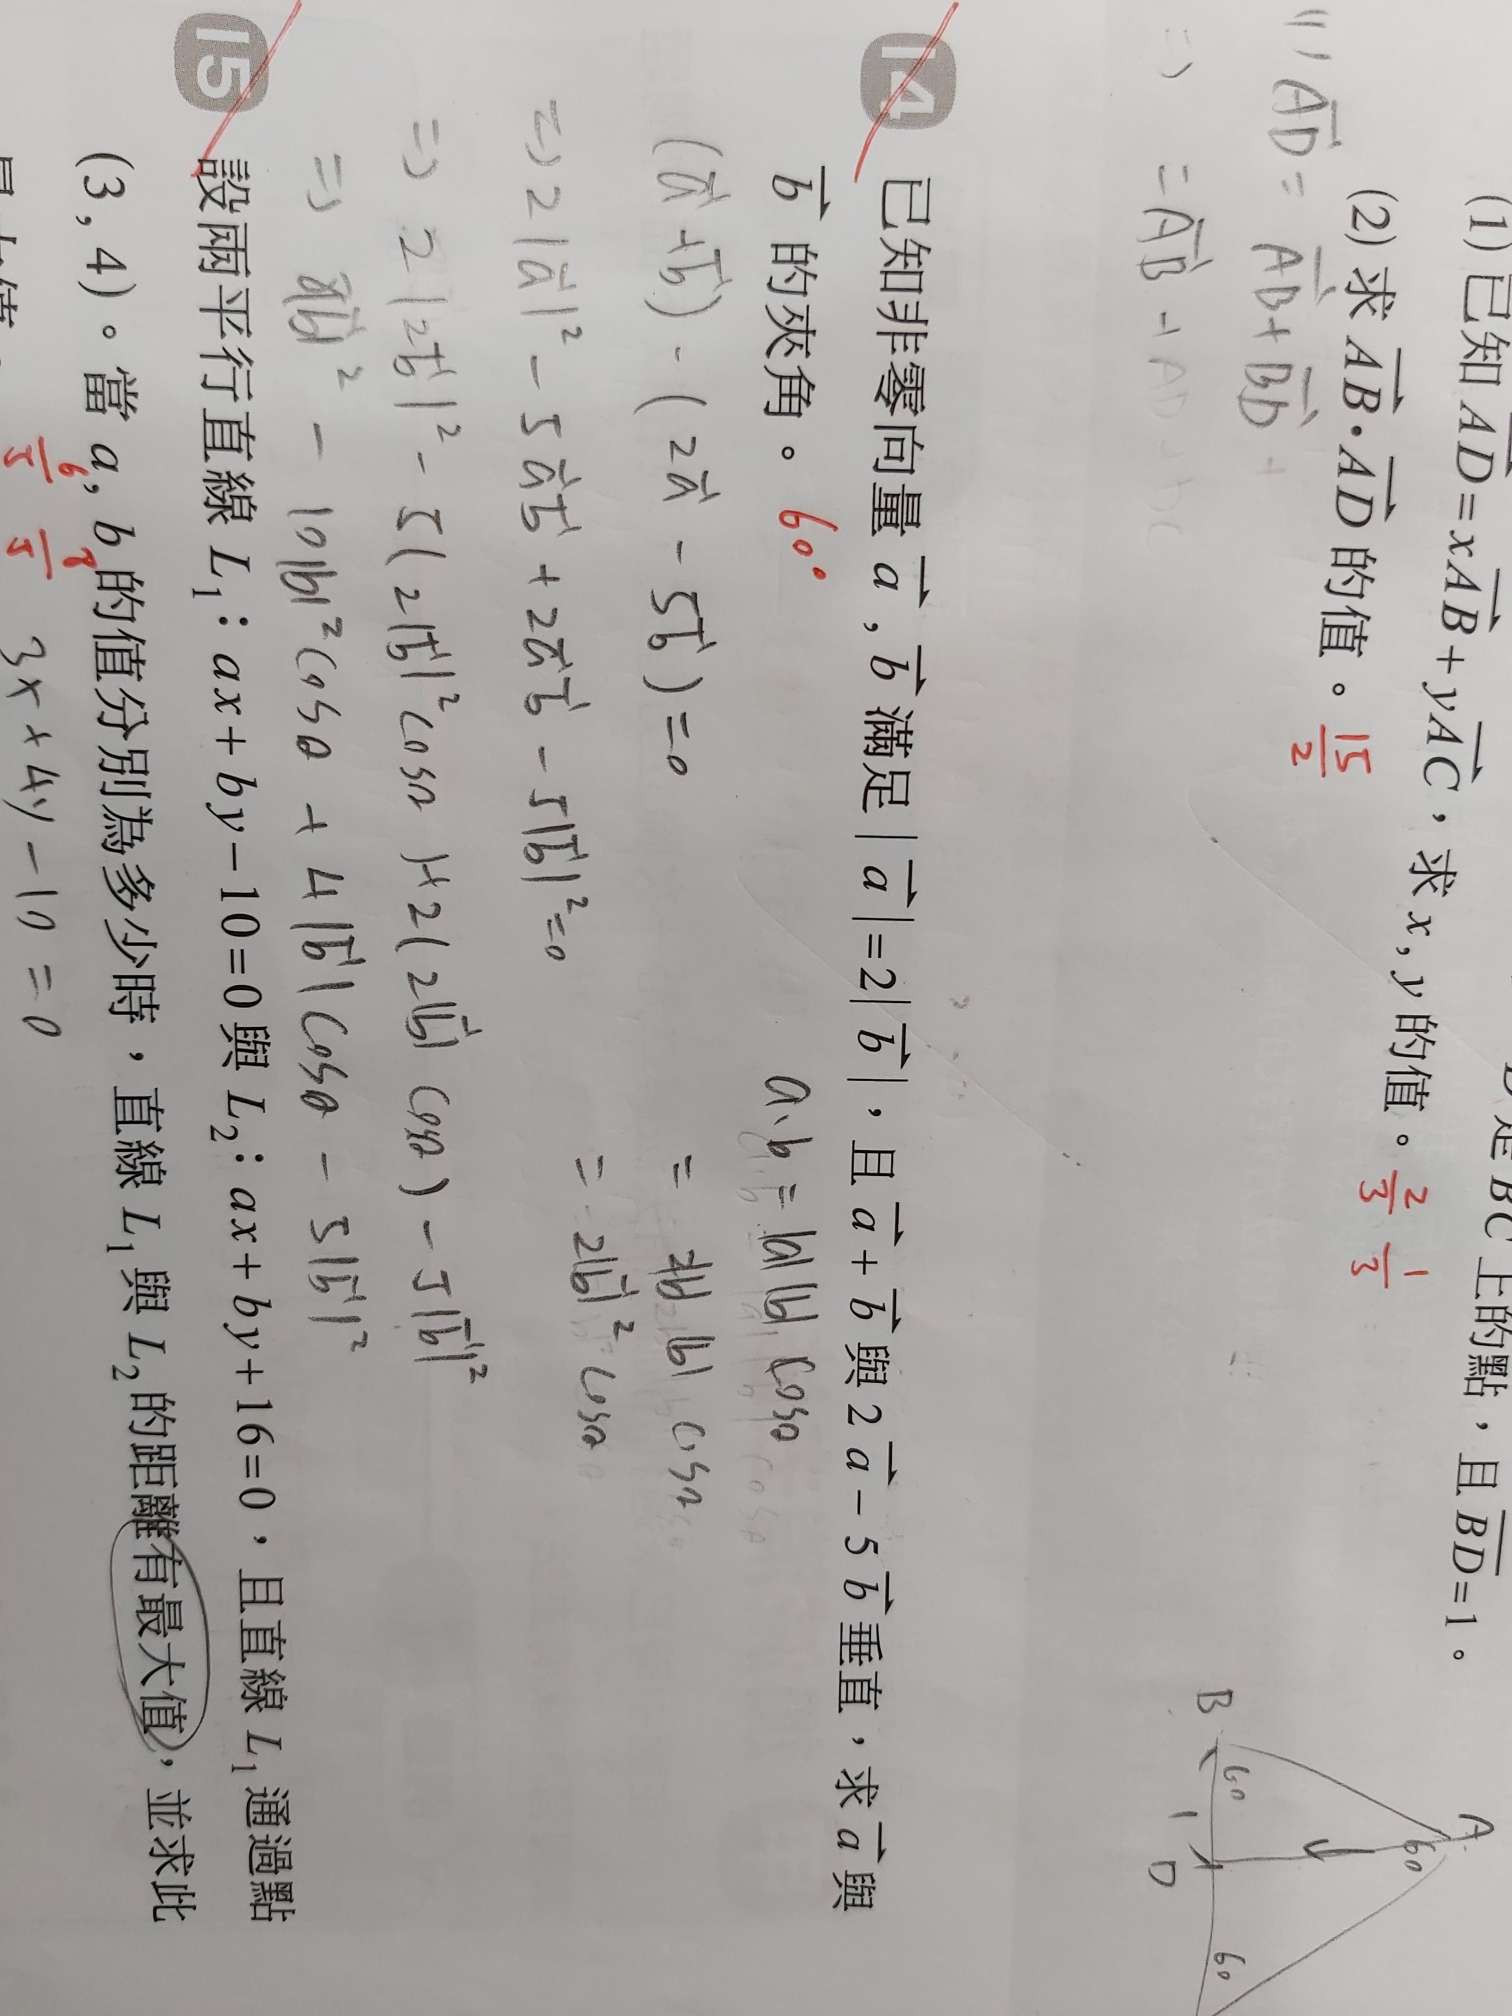 D是BC上的點，且BD=1。
(1) 已知AD=xAB+yAC，求x, y的值。 2/3 1/3
(2) 求AB·AD的值。 15/2
(1) AD = AB + BD +
=) = AB + AD
A
60
B 60 1 D 60
14 已知非零向量a, b滿足|a|=2|b|，且a+b與2a-5b垂直，求a與
b的夾角。 60°
a·b = |a||b| cosθ
(a+b) - (2a - 5b) = 0
= 2|b| |b| cosθ
=) 2|a|² - 5ab + 2ab - 5|b|² = 0
= 2|b|² cosθ
=) 2|2b|² - 5(2|b|² cosθ) + 2(2|b| cosθ) - 5|b|²
=) 8|b|² - 10|b|² cosθ + 4|b| cosθ - 5|b|²
15 設兩平行直線L₁：ax+by-10=0與L₂：ax+by+16=0，且直線L₁通過點
(3, 4)。當a, b的值分別為多少時，直線L₁與L₂的距離有最大值，並求此
6/5 8/5
3x + 4y - 10 = 0
最大值。